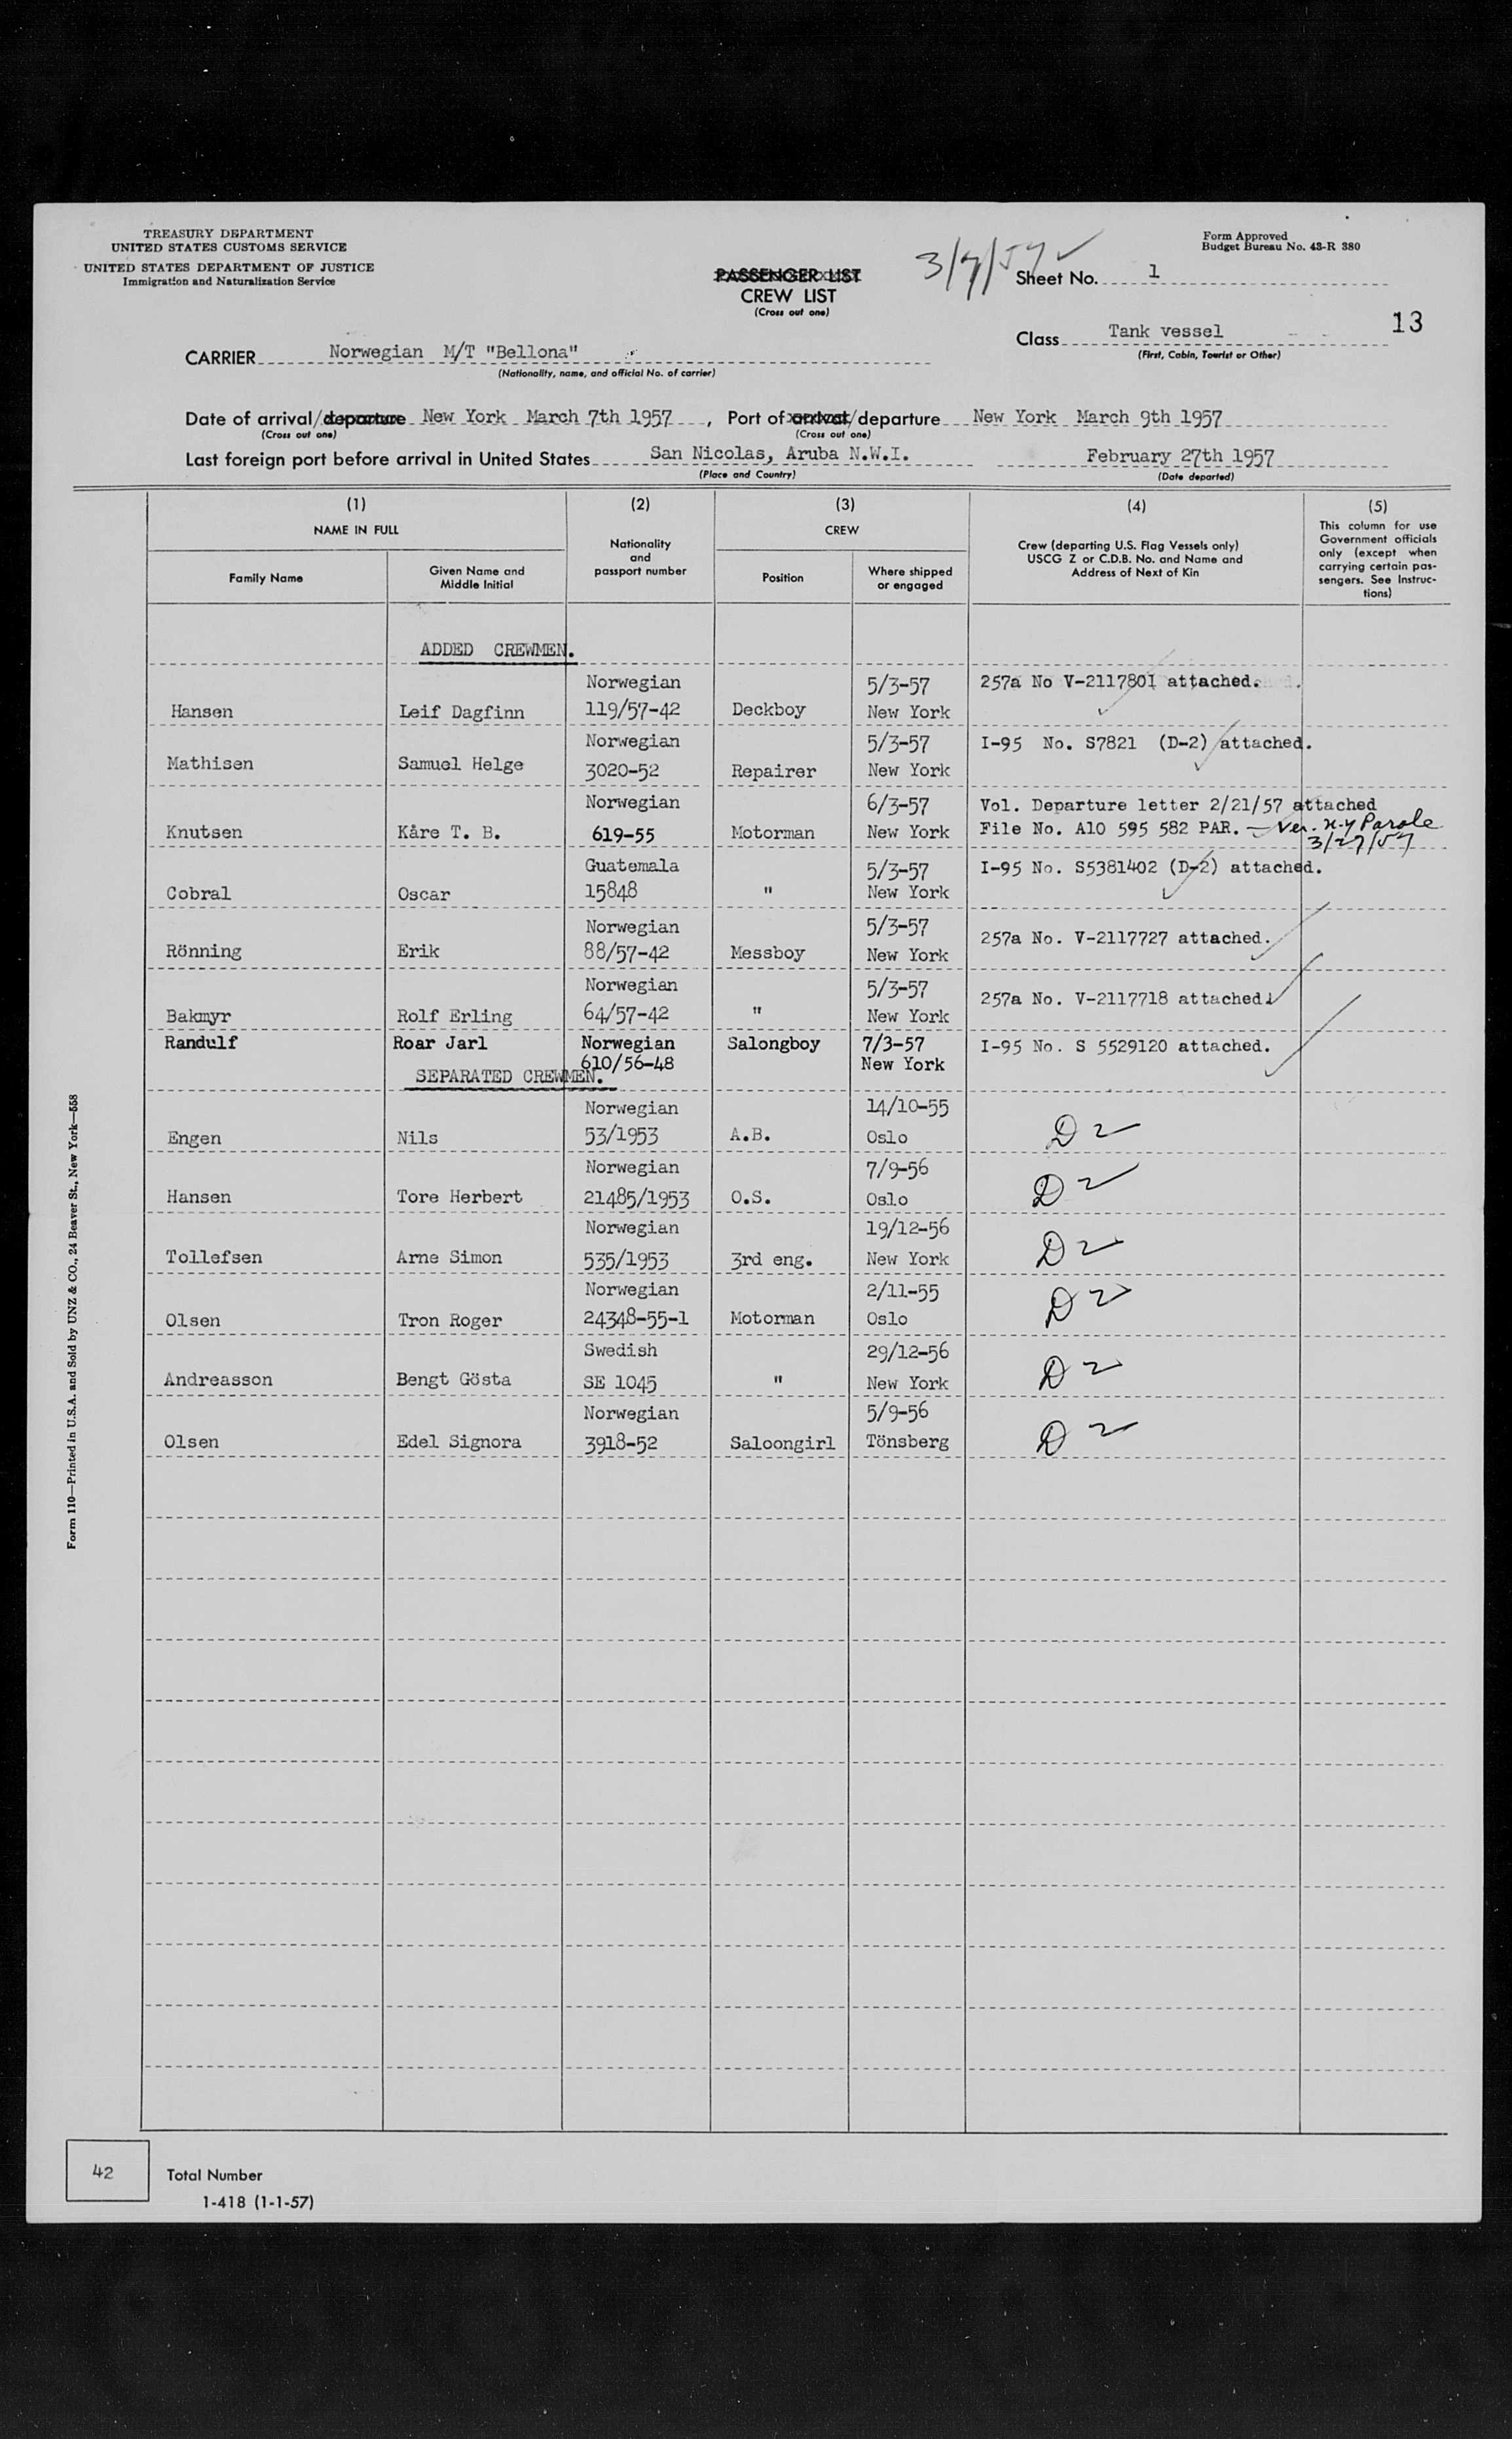 TREASURY DEPARTMENT
UNITED STATES CUSTOMS SERVICE
UNITED STATES DEPARTMENT OF JUSTICE
Immigration and Naturalization Service
PASSENGER LIST
CREW LIST
(Cross out one)
3/7/57
Form Approved
Budget Bureau No. 43-R 380
Sheet No. 1
13
CARRIER Norwegian M/T "Bellona"
(Nationality, name, and official No. of carrier)
Class Tank vessel
(First, Cabin, Tourist or Other)
Date of arrival/departure New York March 7th 1957, Port of arrival/departure New York March 9th 1957
(Cross out one) (Cross out one)
Last foreign port before arrival in United States San Nicolas, Aruba N.W.I. February 27th 1957
(Place and Country) (Date departed)
(1) (2) (3) (4) (5)
NAME IN FULL
Family Name
Given Name and Middle Initial
Nationality and passport number
CREW
Position
Where shipped or engaged
Crew (departing U.S. Flag Vessels only)
USCG Z or C.D.B. No. and Name and
Address of Next of Kin
This column for use
Government officials
only (except when
carrying certain pas-
sengers. See Instruc-
tions)
ADDED CREWMEN.
Norwegian 5/3-57 257a No V-2117801 attached.
Hansen Leif Dagfinn 119/57-42 Deckboy New York
Norwegian 5/3-57 I-95 No. S7821 (D-2) attached.
Mathisen Samuel Helge 3020-52 Repairer New York
Norwegian 6/3-57 Vol. Departure letter 2/21/57 attached
Knutsen Kåre T. B. 619-55 Motorman New York File No. A10 595 582 PAR. — Ver. N-Y Parole
3/27/57
Guatemala 5/3-57 I-95 No. S5381402 (D-2) attached.
Cobral Oscar 15848 " New York
Norwegian 5/3-57 257a No. V-2117727 attached.
Rönning Erik 88/57-42 Messboy New York
Norwegian 5/3-57 257a No. V-2117718 attached.
Bakmyr Rolf Erling 64/57-42 " New York
Randulf Roar Jarl Norwegian Salongboy 7/3-57 I-95 No. S 5529120 attached.
610/56-48 New York
SEPARATED CREWMEN.
Norwegian 14/10-55
Engen Nils 53/1953 A.B. Oslo D 2
Norwegian 7/9-56
Hansen Tore Herbert 21485/1953 O.S. Oslo D 2
Norwegian 19/12-56
Tollefsen Arne Simon 535/1953 3rd eng. New York D 2
Norwegian 2/11-55
Olsen Tron Roger 24348-55-1 Motorman Oslo D 2
Swedish 29/12-56
Andreasson Bengt Gösta SE 1045 " New York D 2
Norwegian 5/9-56
Olsen Edel Signora 3918-52 Saloongirl Tönsberg D 2
Form 110—Printed in U.S.A. and Sold by UNZ & CO., 24 Beaver St., New York—558
42
Total Number
1-418 (1-1-57)